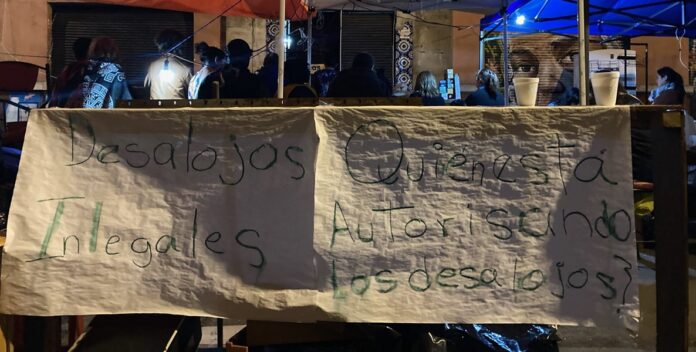 Desalojos
Inlegales
Quién está
Autorisando
los desalojos?